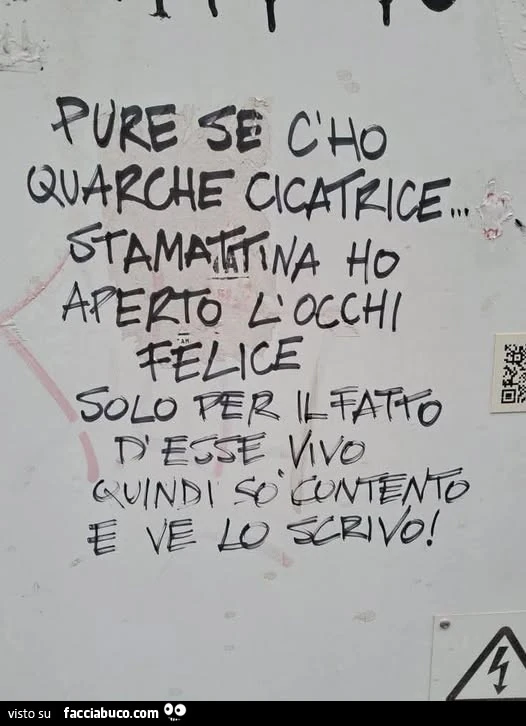 PURE SE C'HO
QUARCHE CICATRICE...
STAMATTINA HO
APERTO L'OCCHI
FELICE
SOLO PER IL FATTO
D'ESSE VIVO
QUINDI SO' CONTENTO
E VE LO SCRIVO!
visto su facciabuco.com